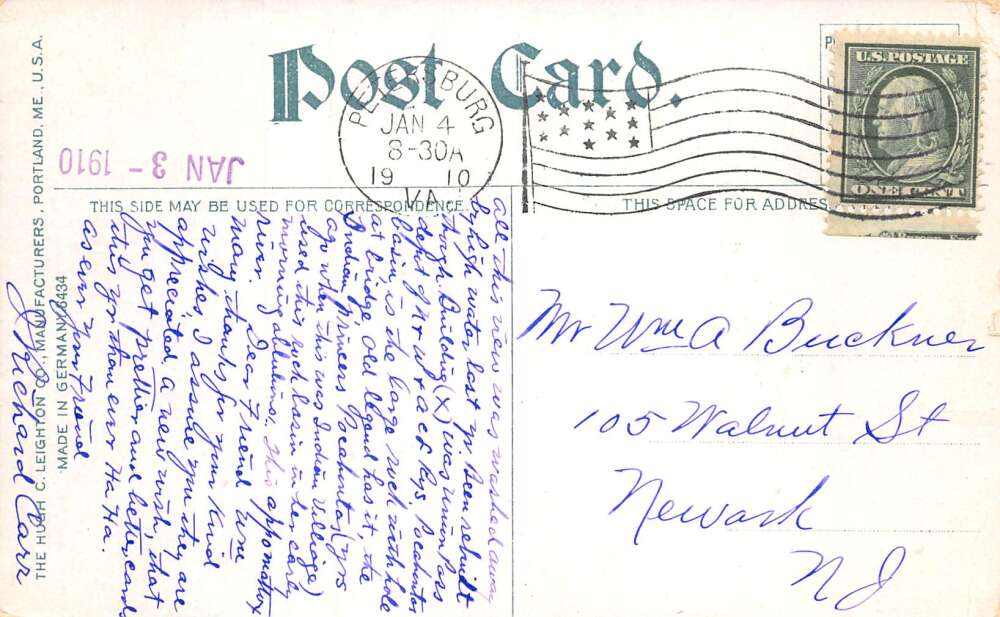 Post Card.
PETERSBURG
JAN 4
8-30A
19 10
VA.
U.S. POSTAGE
ONE CENT
JAN 3 - 1910
THIS SIDE MAY BE USED FOR CORRESPONDENCE.
THIS SPACE FOR ADDRES
THE HUGH C. LEIGHTON CO., MANUFACTURERS, PORTLAND, ME., U.S.A.
MADE IN GERMANY 6434
all this view was washed away
by high water last yr. Been rebuilt
though. Building (X) was union Pass
depot of N & W & A C L Rys. Pocahontas
basin is the large rock with hole
at bridge, old legend has it, the
Indian princess Pocahontas (yrs
ago when this was Indian Village)
used this rock basin in her early
morning ablutions. This appomattox
river. Dear Friend Wm
Many thanks for your kind
wishes, I assure you they are
appreciated a new wish, that
you get prettier and better cards
this yr than ever Ha Ha.
as ever your Friend
Richard Carr
Mr Wm A Buckner
105 Walnut St
Newark
N J